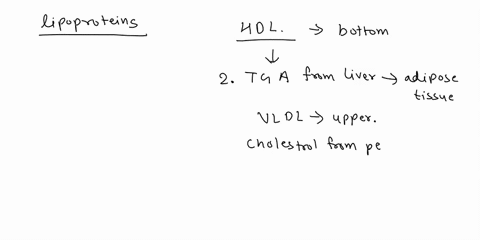 lipoproteins
HDL. → bottom
↓
2. TGA from liver → adipose
tissue
VLDL → upper.
Cholestrol from pe